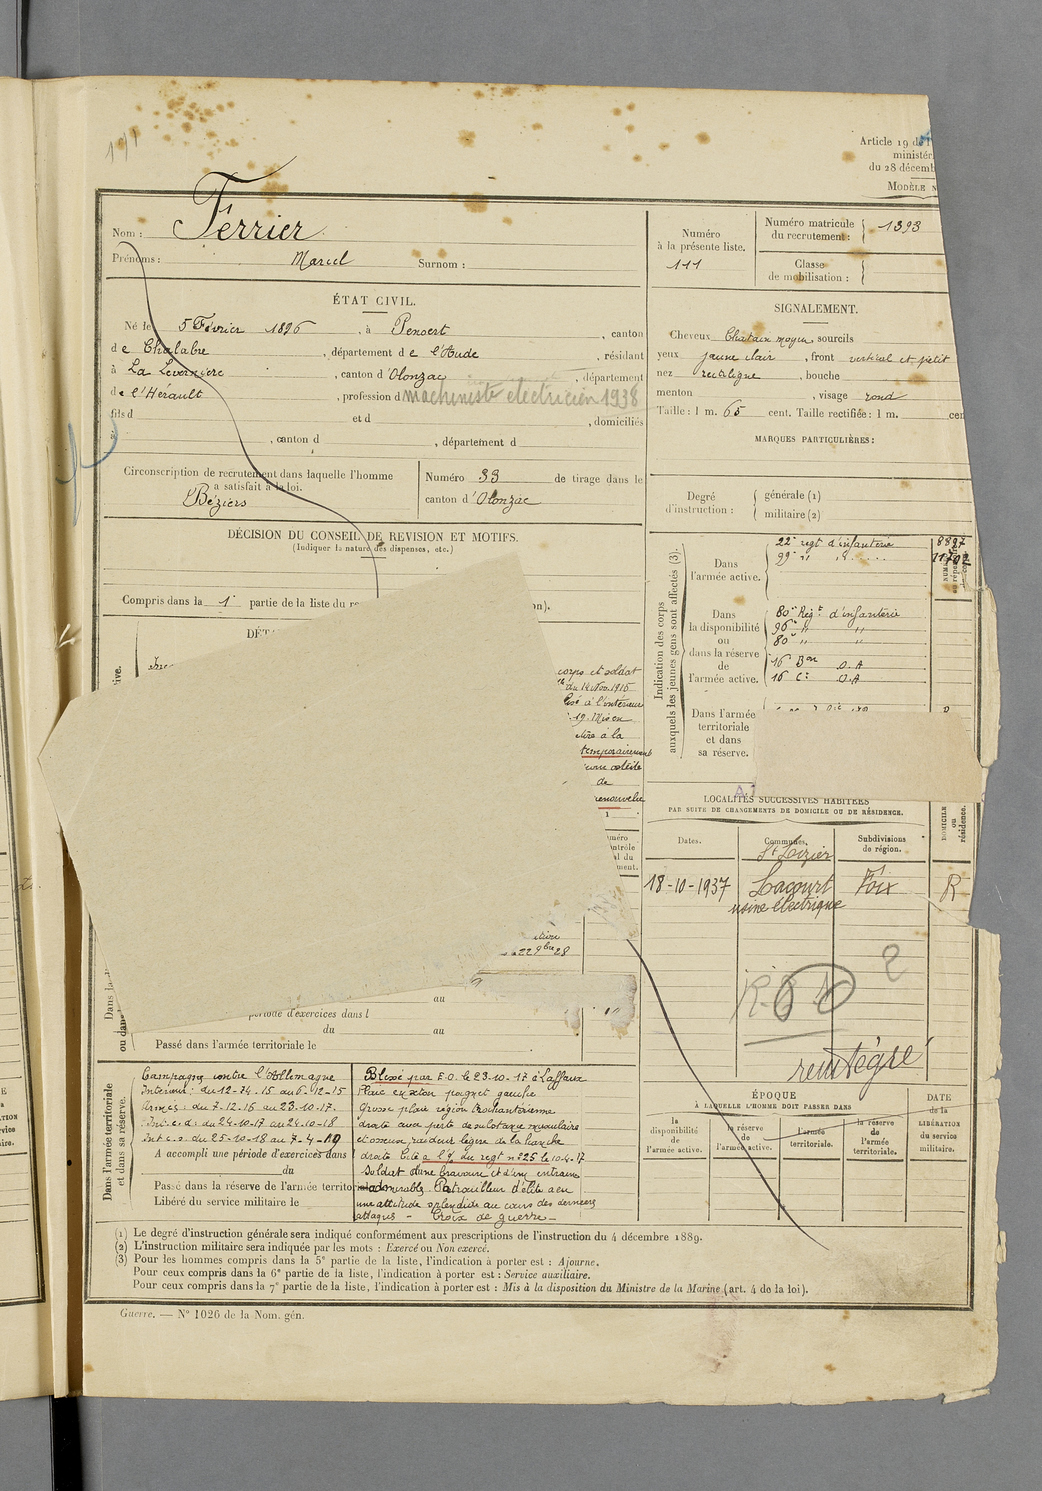 Article 19 de l'
ministér
du 28 décemb
MODÈLE N
Nom : Ferrier
Prénoms : Marcel Surnom :
Numéro
à la présente liste.
111
Numéro matricule
du recrutement : 1393
Classe
de mobilisation :
ÉTAT CIVIL.
Né le 5 Février 1896, à canton
de Chalabre, département de l'Aude, résidant
à La, canton d'Olonzac, département
de l'Hérault, profession d machiniste electricien 1938
fils d et d, domiciliés
à, canton d, département d
SIGNALEMENT.
Cheveux Chatain moyen, sourcils
yeux jaune clair, front vertical et petit
nez rectiligne, bouche
menton, visage rond
Taille : 1 m. 65 cent. Taille rectifiée : 1 m. cen
MARQUES PARTICULIÈRES :
Circonscription de recrutement dans laquelle l'homme
a satisfait à la loi.
Béziers
Numéro 33 de tirage dans le
canton d'Olonzac
Degré
d'instruction :
générale (1)
militaire (2)
DÉCISION DU CONSEIL DE REVISION ET MOTIFS.
(Indiquer la nature des dispenses, etc.)
Compris dans la 1e partie de la liste du re
on).
DÉT
corps et soldat
du 14 Nov. 1916
à l'intérieur
19. Mis en
à la
temporairement
de
renouvelée
Indication des corps
auxquels les jeunes gens sont affectés (3).
Dans
l'armée active.
22e regt d'infanterie 8897
99e " "
Dans
la disponibilité
ou
dans la réserve
de
l'armée active.
80e Régt d'infanterie
96e " "
80e " "
16 Bon O.A
16 Cie O.A
Dans l'armée
territoriale
et dans
sa réserve.
LOCALITÉS SUCCESSIVES HABITÉES
PAR SUITE DE CHANGEMENTS DE DOMICILE OU DE RÉSIDENCE.
Dates.
Communes.
Subdivisions
de région.
DOMICILE
ou
résidence.
St Lizier
18-10-1937 Lacourt Foix R
usine électrique
R.
2
reintégré
au
période d'exercices dans l
du au
Passé dans l'armée territoriale le
Dans l'armée territoriale
et dans sa réserve.
Campagne contre l'Allemagne
Interieur : du 12-74.15 au 6-12-15
Armées : du 7.12.16 au 23.10.17.
Int. c. d. : du 24-10-17 au 24-10-18
Int c. s. du 25-10-18 au 7-4-19
A accompli une période d'exercices dans l
du
Passé dans la réserve de l'armée territor
Libéré du service militaire le
Blessé par E.O. le 23-10-17 à Laffaux
Plaie en séton poignet gauche
Grosse plaie région trochantérienne
droite avec perte de substance musculaire
et osseuse raideur légère de la hanche
droite Cité à l'o/ du regt n°25 le 10-4-17
Soldat d'une bravoure et d'un entrain
admirables Patrouilleur d'élite a eu
une attitude splendide au cours des dernières
attaques - Croix de guerre -
ÉPOQUE
À LAQUELLE L'HOMME DOIT PASSER DANS
la
disponibilité
de
l'armée active.
la réserve
de
l'armée active.
l'armée
territoriale.
la réserve
de
l'armée
territoriale.
DATE
de la
LIBÉRATION
du service
militaire.
(1) Le degré d'instruction générale sera indiqué conformément aux prescriptions de l'instruction du 4 décembre 1889.
(2) L'instruction militaire sera indiquée par les mots : Exercé ou Non exercé.
(3) Pour les hommes compris dans la 5e partie de la liste, l'indication à porter est : Ajourné.
Pour ceux compris dans la 6e partie de la liste, l'indication à porter est : Service auxiliaire.
Pour ceux compris dans la 7e partie de la liste, l'indication à porter est : Mis à la disposition du Ministre de la Marine (art. 4 de la loi).
Guerre. — N° 1026 de la Nom. gén.